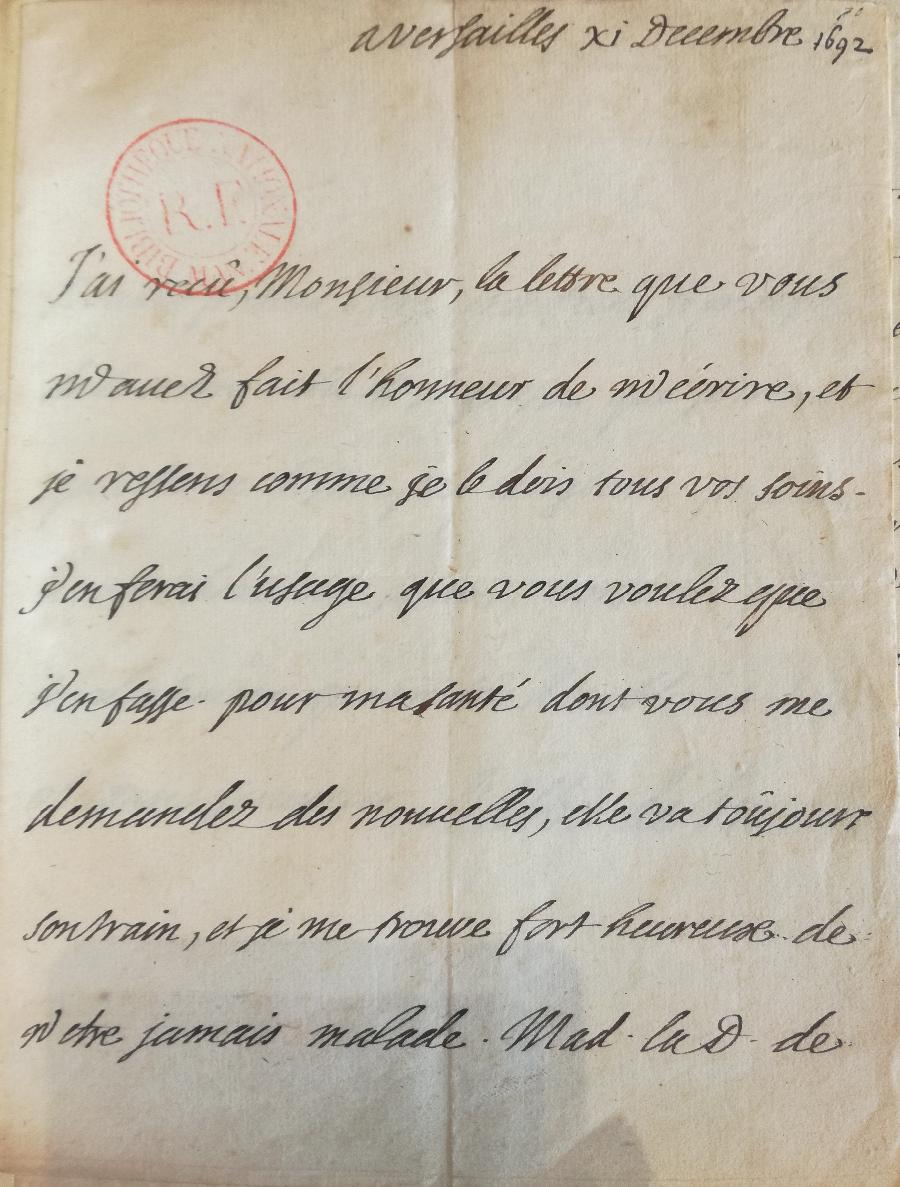 a Versailles xi Decembre 1692
BIBLIOTHEQUE NATIONALE MR
R.F.
J'ai receu, Monsieur, la lettre que vous
m'auez fait l'honneur de m'écrire, et
je ressens comme je le dois tous vos soins.
j'en ferai l'usage que vous voulez que
j'en fasse. pour ma santé dont vous me
demandez des nouuelles, elle va toûjours
son train, et je me trouue fort heureuse de
n'etre jamais malade. Mad. la D. de